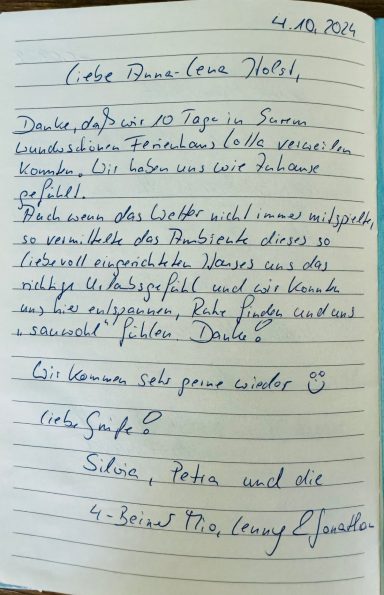 4.10.2024
Liebe Anna-Lena Holst,
Danke, daß wir 10 Tage in Eurem
wunderschönen Ferienhaus Lotta verweilen
konnten. Wir haben uns wie Zuhause
gefühlt.
Auch wenn das Wetter nicht immer mitspielte,
so vermittelte das Ambiente dieses so
liebevoll eingerichteten Hauses uns das
richtige Urlaubsgefühl und wir konnten
uns hier entspannen, Ruhe finden und uns
„sauwohl“ fühlen. Danke!
Wir kommen sehr gerne wieder
Liebe Grüße!
Silvia, Petra und die
4-Beiner Mio, Lenny & Jonathan